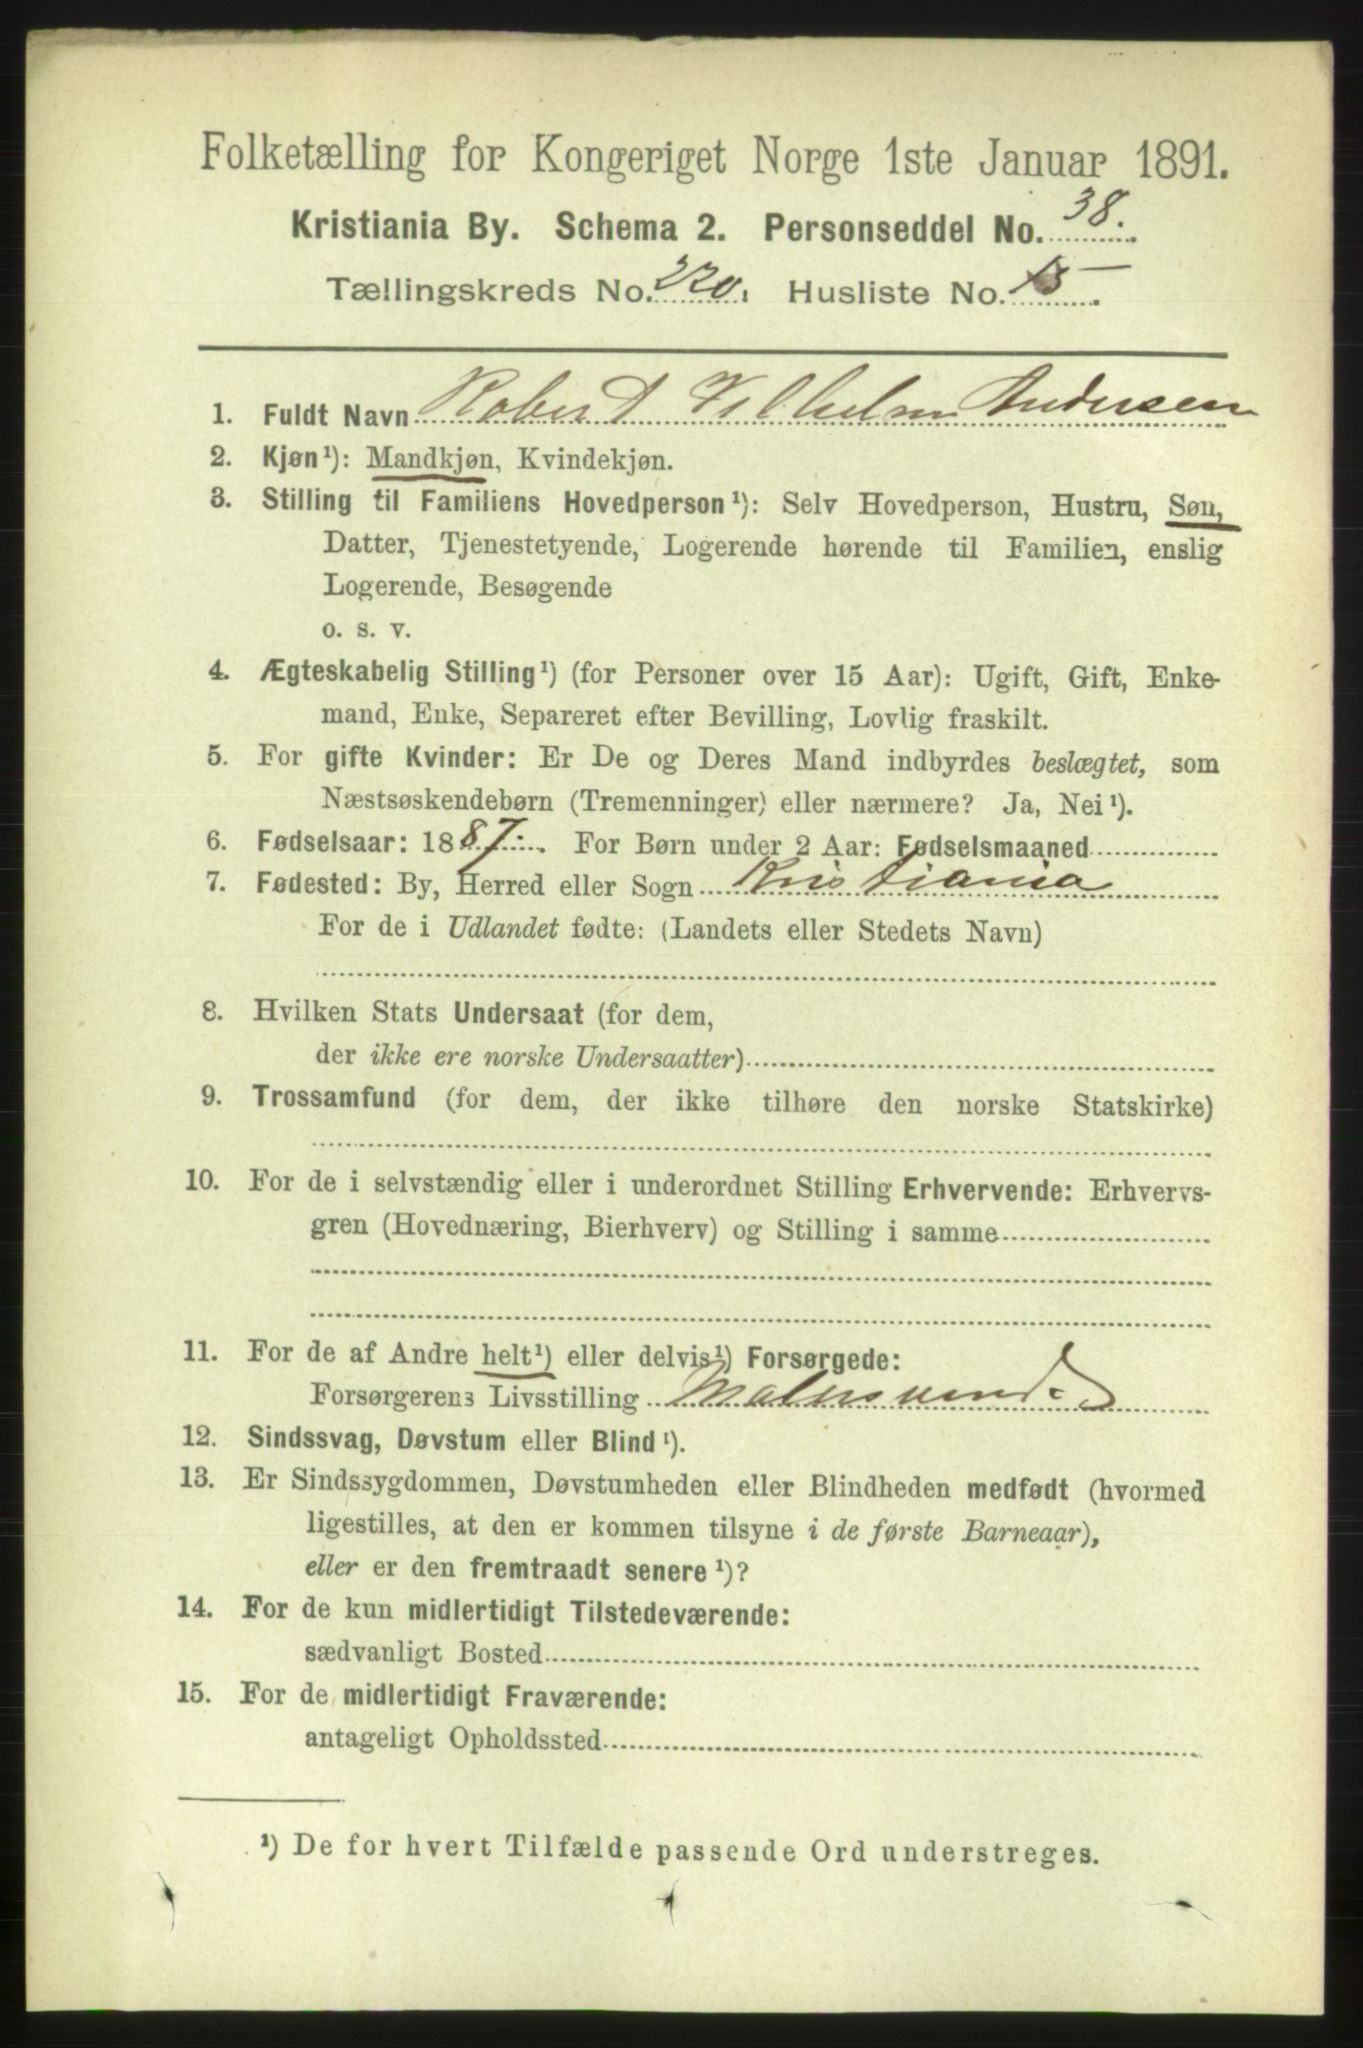 Folketælling for Kongeriget Norge 1ste Januar 1891.
Kristiania By. Schema 2. Personseddel No. 38.
Tællingskreds No. 220. Husliste No.
1. Fuldt Navn Robert Vilhelm Andersen
2. Kjøn¹): Mandkjøn, Kvindekjøn.
3. Stilling til Familiens Hovedperson¹): Selv Hovedperson, Hustru, Søn,
Datter, Tjenestetyende, Logerende hørende til Familien, enslig
Logerende, Besøgende
o. s. v.
4. Ægteskabelig Stilling¹) (for Personer over 15 Aar): Ugift, Gift, Enke-
mand, Enke, Separeret efter Bevilling, Lovlig fraskilt.
5. For gifte Kvinder: Er De og Deres Mand indbyrdes beslægtet, som
Næstsøskendebørn (Tremenninger) eller nærmere? Ja, Nei¹).
6. Fødselsaar: 1887. For Børn under 2 Aar: Fødselsmaaned
7. Fødested: By, Herred eller Sogn Kristiania
For de i Udlandet fødte: (Landets eller Stedets Navn)
8. Hvilken Stats Undersaat (for dem,
der ikke ere norske Undersaatter)
9. Trossamfund (for dem, der ikke tilhøre den norske Statskirke)
10. For de i selvstændig eller i underordnet Stilling Erhvervende: Erhvervs-
gren (Hovednæring, Bierhverv) og Stilling i samme
11. For de af Andre helt¹) eller delvis¹) Forsørgede:
Forsørgerens Livsstilling Malersvend
12. Sindssvag, Døvstum eller Blind¹).
13. Er Sindssygdommen, Døvstumheden eller Blindheden medfødt (hvormed
ligestilles, at den er kommen tilsyne i de første Barneaar),
eller er den fremtraadt senere¹)?
14. For de kun midlertidigt Tilstedeværende:
sædvanligt Bosted
15. For de midlertidigt Fraværende:
antageligt Opholdssted
¹) De for hvert Tilfælde passende Ord understreges.